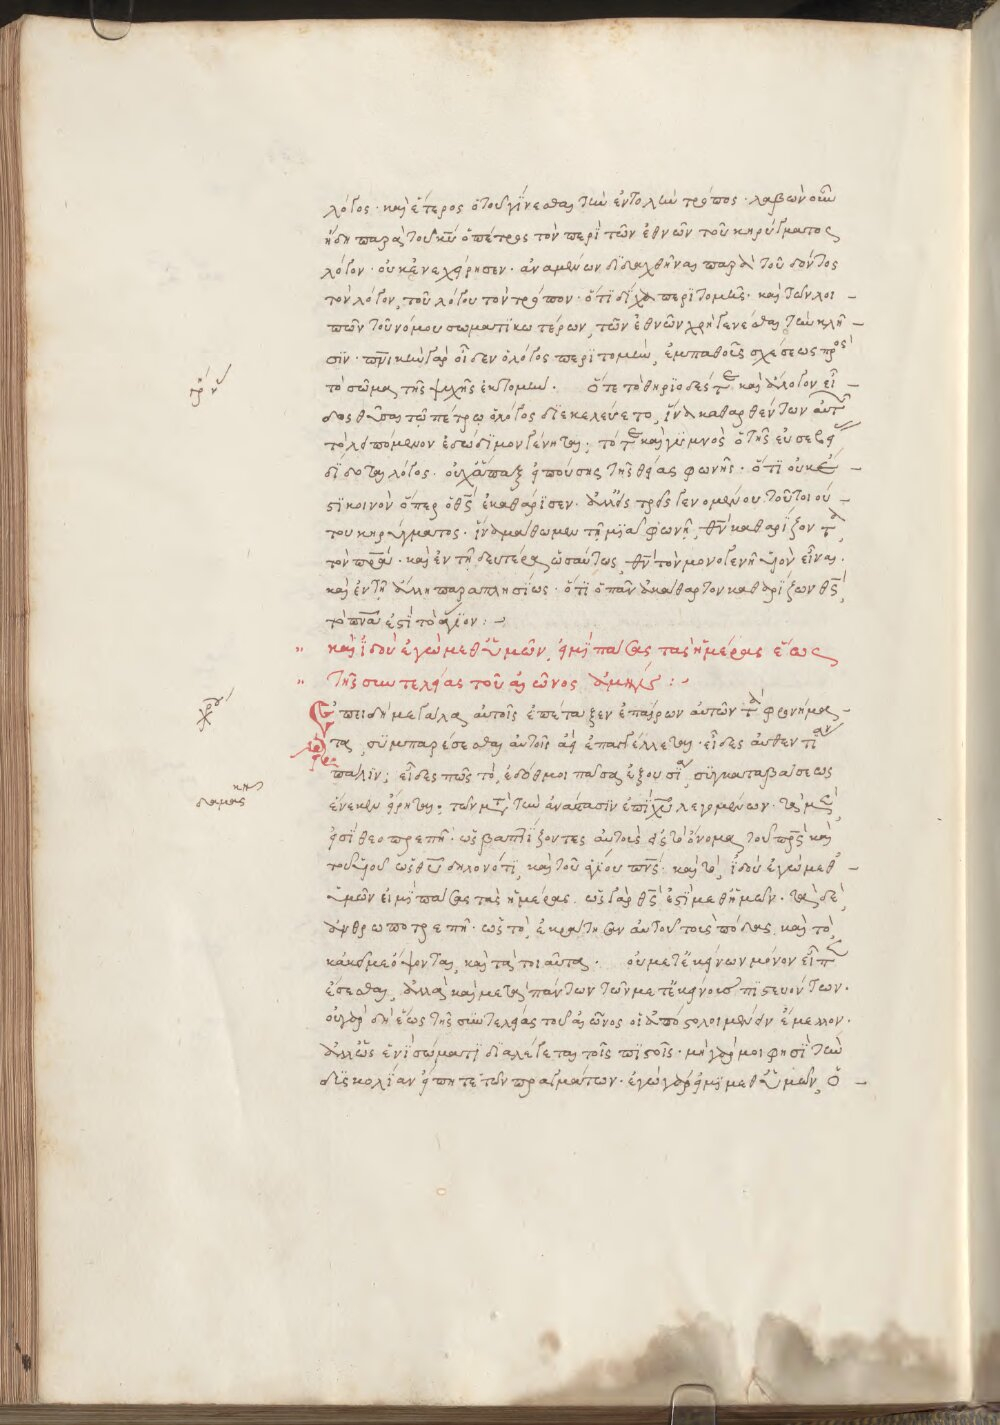 λόγος · καὶ ἕτερος ὁ τοῦ γίνεσθαι τῶν ἐντολῶν τρόπος · λαβὼν οὖν
ἤδη παρὰ τοῦ κυ ὁ πέτρος τὸν περὶ τῶν ἐθνῶν τοῦ κηρύγματος
λόγον · οὐκ ἐνεχείρησεν · ἀναμένων διδαχθῆναι παρὰ τοῦ δόντος
τὸν λόγον, τοῦ λόγου τὸν τρόπον · ὅτι δίχα περιτομῆς · καὶ τῶν λοι –
πῶν τοῦ νόμου σωματικωτέρων, τῶν ἐθνῶν χρὴ γενέσθαι τὴν κλῆ –
σιν · πνικὴν γὰρ οἶδεν ὁ λόγος περιτομὴν, ἐμπαθοῦς σχέσεως πρὸς
τὸ σῶμα τῆς ψυχῆς ἐκτομήν. ὅτε τὸ θηριῶδές τε καὶ ἄλογον εἶ –
δος θῦσαι τῷ πέτρῳ ὁ λόγος διεκελεύετο, ἵνα καθαρθέντων αὐτ
τὸ λειπόμενον ἐδώδιμον γένηται ·
δίδοται λόγος · οὐχ ἅπαξ εἰπούσης τῆς θείας φωνῆς · ὅτι οὐκ ἔ –
στι κοινὸν ὅπερ ὁ θς ἐκαθάρισεν · ἀλλὰ τρὶς γενομένου τούτου
του κηρύγματος · ἵνα μάθωμεν τῇ μιᾷ φωνῇ, θν καθαρίζον τ
τὸν πρα · καὶ ἐν τῇ δευτέρᾳ ὡσαύτως, θν τὸν μονογενῆ υἱὸν εἶναι ·
καὶ ἐν τῇ ἄλλῃ παραπλησίως · ὅτι ὁ πᾶν ἀκάθαρτον καθαρίζων θς,
τὸ πνα ἐστὶ τὸ ἅγιον : –
" καὶ ἰδοὺ ἐγὼ μεθ' ὑμῶν εἰμι πάσας τὰς ἡμέρας ἕως
" τῆς συντελείας τοῦ αἰῶνος ἀμήν : –
Ἐπειδὴ μεγάλα αὐτοῖς ἐπέταξεν ἐπαίρων αὐτῶν τὰ φρονήμα –
τα, συμπαρέσεσθαι αὐτοῖς ἀεὶ ἐπαγγέλλεται · εἶδες αὐθεντίαν
πάλιν ; εἶδες πῶς τὸ, ἐδόθη μοι πᾶσα ἐξουσία, συγκαταβάσεως
ἕνεκεν εἴρηται ; τῶν μετὰ τὴν ἀνάστασιν ἐπὶ χυ λεγομένων · τὰ μὲν
εἰσὶ θεοπρεπῆ · ὡς βαπτίζοντες αὐτοὺς εἰς τὸ ὄνομα τοῦ πρς καὶ
τοῦ υἱοῦ ὡς θυ δηλονότι, καὶ τοῦ ἁγίου πνς · καὶ τὸ, ἰδοὺ ἐγὼ μεθ'
ὑμῶν εἰμι πάσας τὰς ἡμέρας · ὡς γὰρ θς ἐστὶ μεθ' ἡμῶν · τὰ δὲ,
ἀνθρωποπρεπῆ · ὡς τὸ, ἐκράτησαν αὐτοῦ τοὺς πόδας, καὶ τὸ,
κἀκεῖ με ὄψονται, καὶ τὰ τοιαῦτα · οὐ μετ' ἐκείνων μόνον εἶπεν
ἔσεσθαι, ἀλλὰ καὶ μετὰ πάντων τῶν μετ' ἐκείνους πιστευόντων ·
οὐ γὰρ δὴ ἕως τῆς συντελείας τοῦ αἰῶνος οἱ ἀπόστολοι μένειν ἔμελλον ·
ἀλλ' ὡς ἑνὶ σώματι διαλέγεται τοῖς πιστοῖς · μὴ γάρ μοι φησὶ τὴν
δυσκολίαν εἴπητε τῶν πραγμάτων · ἐγὼ γάρ εἰμι μεθ' ὑμῶν, ὁ –